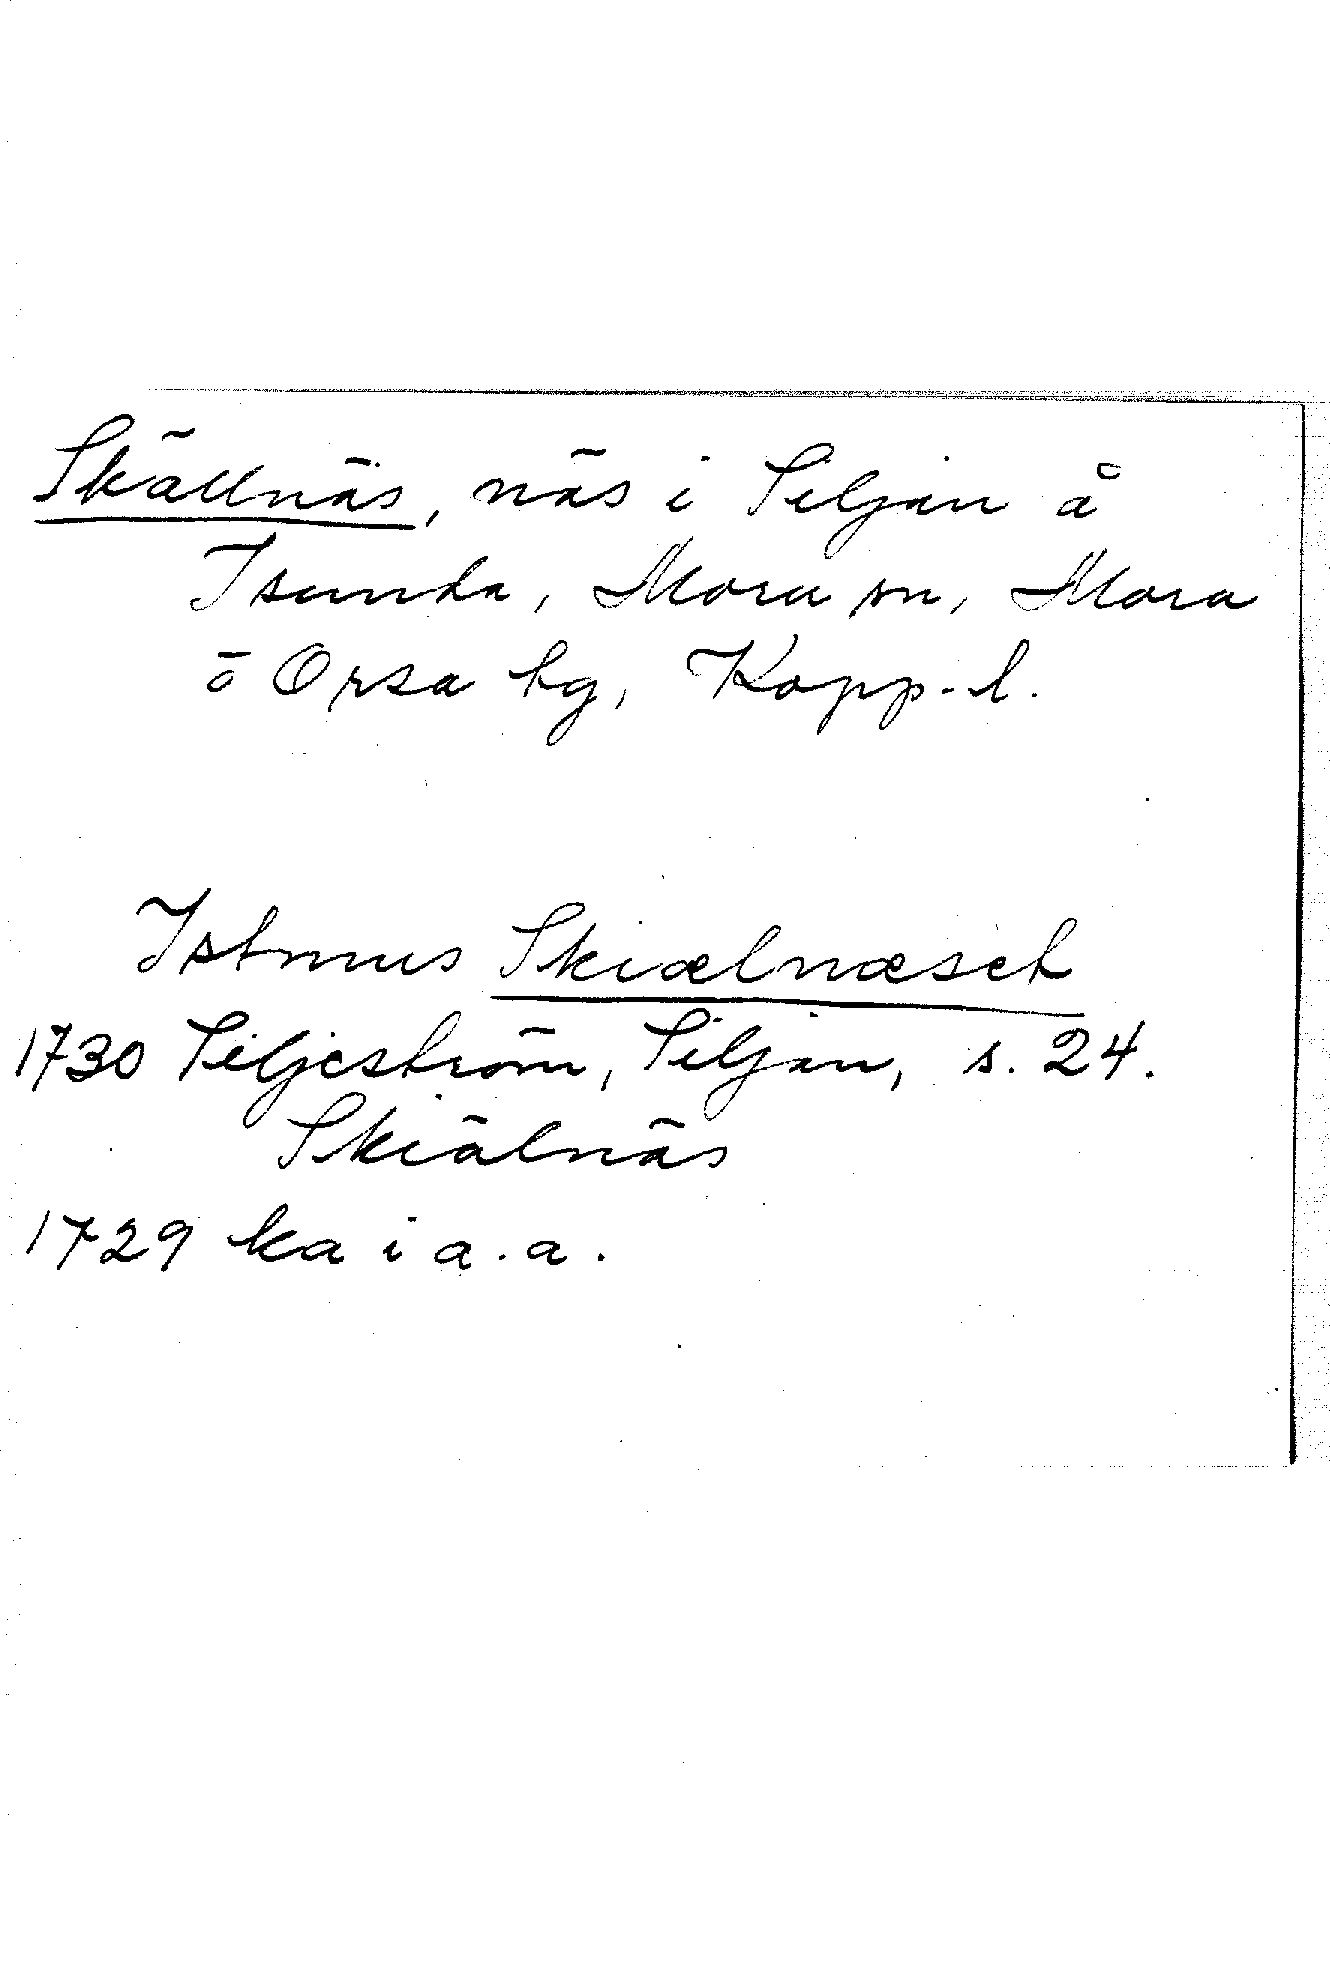 Skällnäs, näs i Siljan å
Isunda, Mora sn, Mora
ö Orsa tg, Kopp.l.
Istmus Skiælnæset
1730 Siljeström, Siljan, s. 24.
Skiälnäs
1729 ka i a.a.